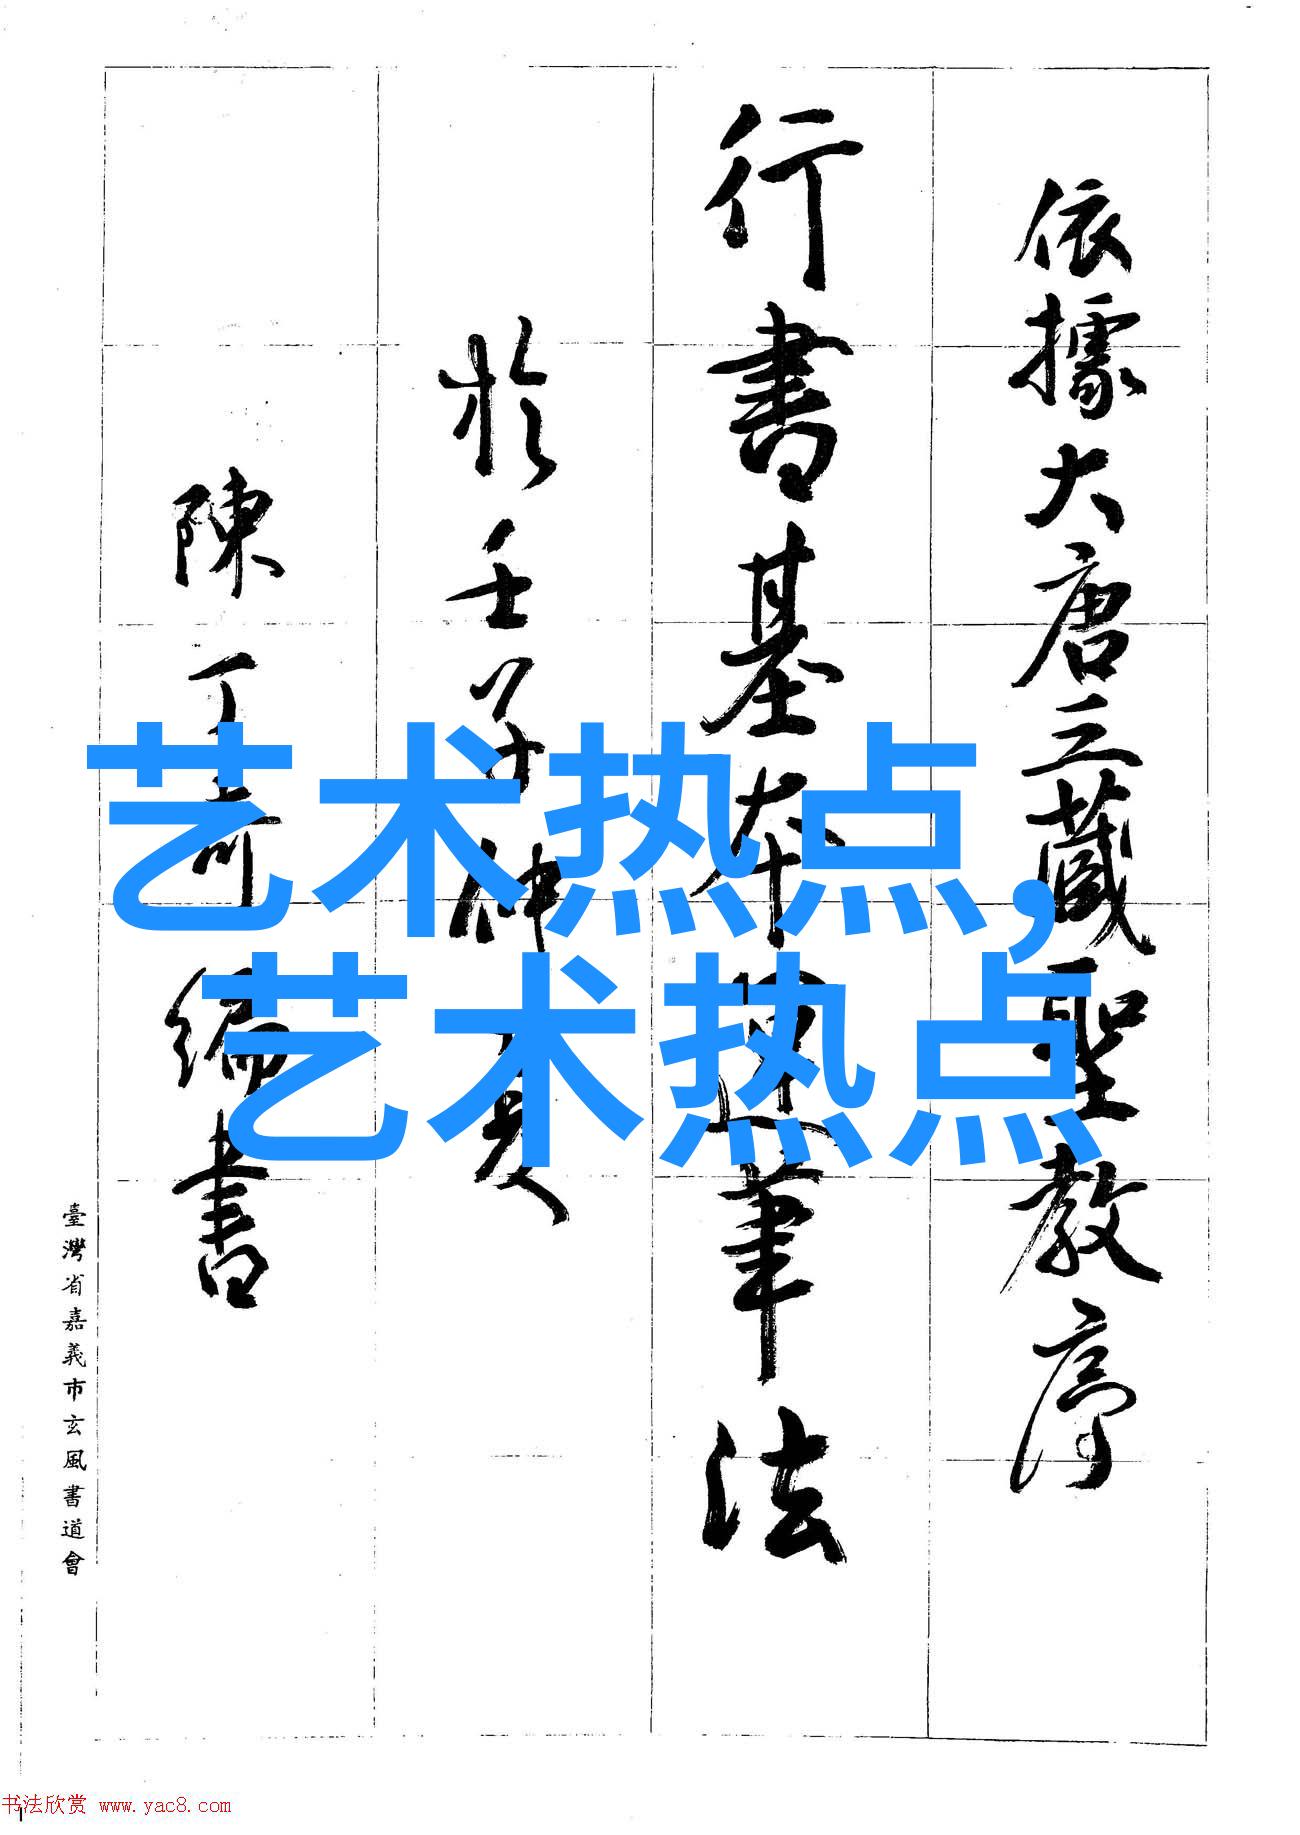 依據大唐三藏聖教序
行書基本運筆法
於壬子仲夏
陳丁奇編書
臺灣省嘉義市玄風書道會
艺术热点,
艺术热点
书法欣赏 www.yac8.com
1